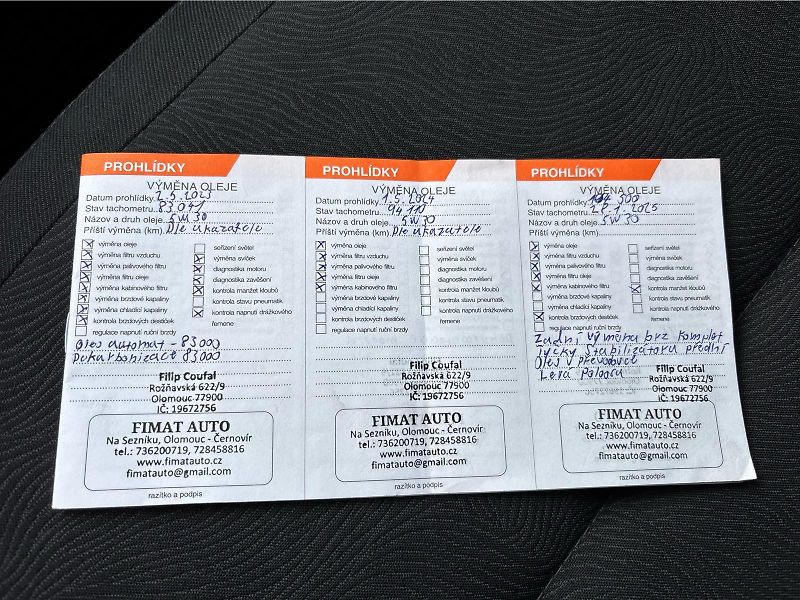 PROHLÍDKY
VÝMĚNA OLEJE
Datum prohlídky 2.5.2023
Stav tachometru 83041
Názov a druh oleje 5W30
Příští výměna (km) Dle ukazatele
výměna oleje
výměna filtru vzduchu
výměna palivového filtru
výměna filtru oleje
výměna kabinového filtru
výměna brzdové kapaliny
výměna chladící kapaliny
kontrola brzdových destiček
regulace napnutí ruční brzdy
seřízení světel
výměna svíček
diagnostika motoru
diagnostika zavěšení
kontrola manžet kloubů
kontrola stavu pneumatik
kontrola napnutí drážkového
řemene
Olej automat - 83000
Dekarbonizace 83000
Filip Coufal
Rožňavská 622/9
Olomouc 77900
IČ: 19672756
FIMAT AUTO
Na Sezníku, Olomouc - Černovír
tel.: 736200719, 728458816
www.fimatauto.cz
fimatauto@gmail.com
razítko a podpis
PROHLÍDKY
VÝMĚNA OLEJE
Datum prohlídky 1.5.2024
Stav tachometru 94110
Názov a druh oleje 5W30
Příští výměna (km) Dle ukazatele
výměna oleje
výměna filtru vzduchu
výměna palivového filtru
výměna filtru oleje
výměna kabinového filtru
výměna brzdové kapaliny
výměna chladící kapaliny
kontrola brzdových destiček
regulace napnutí ruční brzdy
seřízení světel
výměna svíček
diagnostika motoru
diagnostika zavěšení
kontrola manžet kloubů
kontrola stavu pneumatik
kontrola napnutí drážkového
řemene
Filip Coufal
Rožňavská 622/9
Olomouc 77900
IČ: 19672756
FIMAT AUTO
Na Sezníku, Olomouc - Černovír
tel.: 736200719, 728458816
www.fimatauto.cz
fimatauto@gmail.com
razítko a podpis
PROHLÍDKY
VÝMĚNA OLEJE
Datum prohlídky 104 500
Stav tachometru 2025
Názov a druh oleje 5W30
Příští výměna (km)
výměna oleje
výměna filtru vzduchu
výměna palivového filtru
výměna filtru oleje
výměna kabinového filtru
výměna brzdové kapaliny
výměna chladící kapaliny
kontrola brzdových destiček
regulace napnutí ruční brzdy
seřízení světel
výměna svíček
diagnostika motoru
diagnostika zavěšení
kontrola manžet kloubů
kontrola stavu pneumatik
kontrola napnutí drážkového
řemene
Zadní výměna brz komplet
tyčky stabilizátoru přední
Olej v převodovce
Levá Poloosa
Filip Coufal
Rožňavská 622/9
Olomouc 77900
IČ: 19672756
FIMAT AUTO
Na Sezníku, Olomouc - Černovír
tel.: 736200719, 728458816
www.fimatauto.cz
fimatauto@gmail.com
razítko a podpis